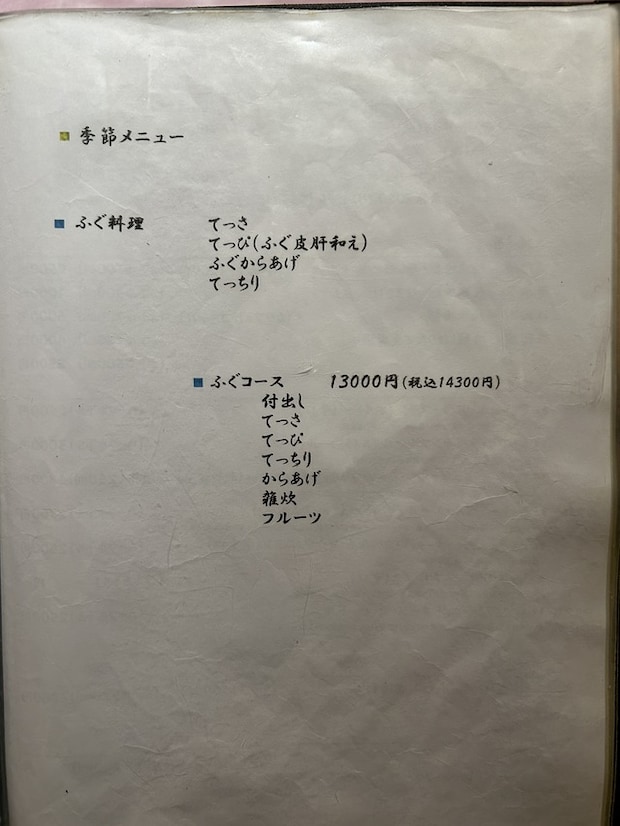 ■ 季節メニュー
■ ふぐ料理 てっさ
てっぴ(ふぐ皮肝和え)
ふぐからあげ
てっちり
■ ふぐコース 13000円(税込14300円)
付出し
てっさ
てっぴ
てっちり
からあげ
雑炊
フルーツ